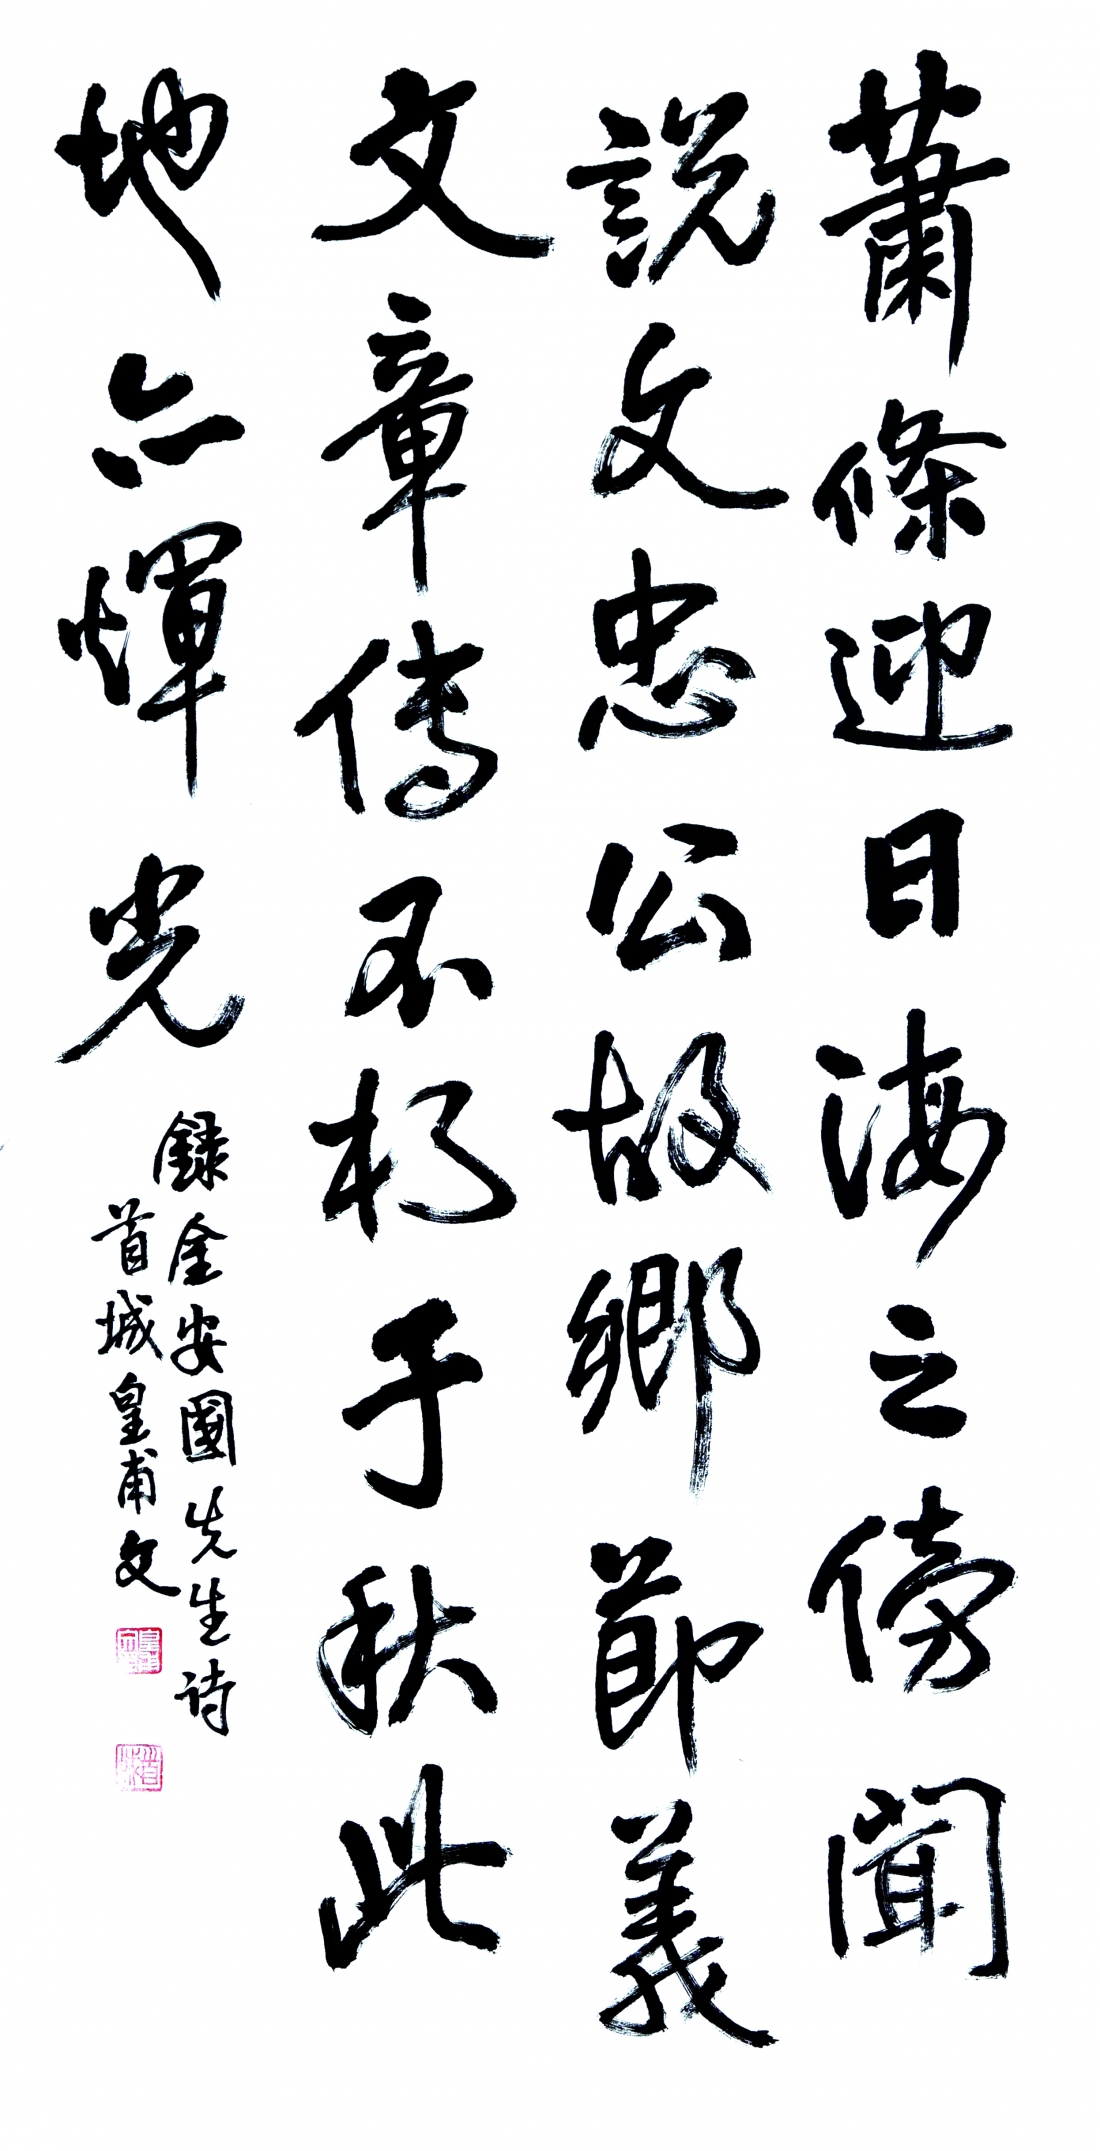 蕭條迎日海之傍聞
說文忠公故鄉節義
文章傳不朽于秋此
地亦煇光
錄金安國先生诗
首城皇甫文